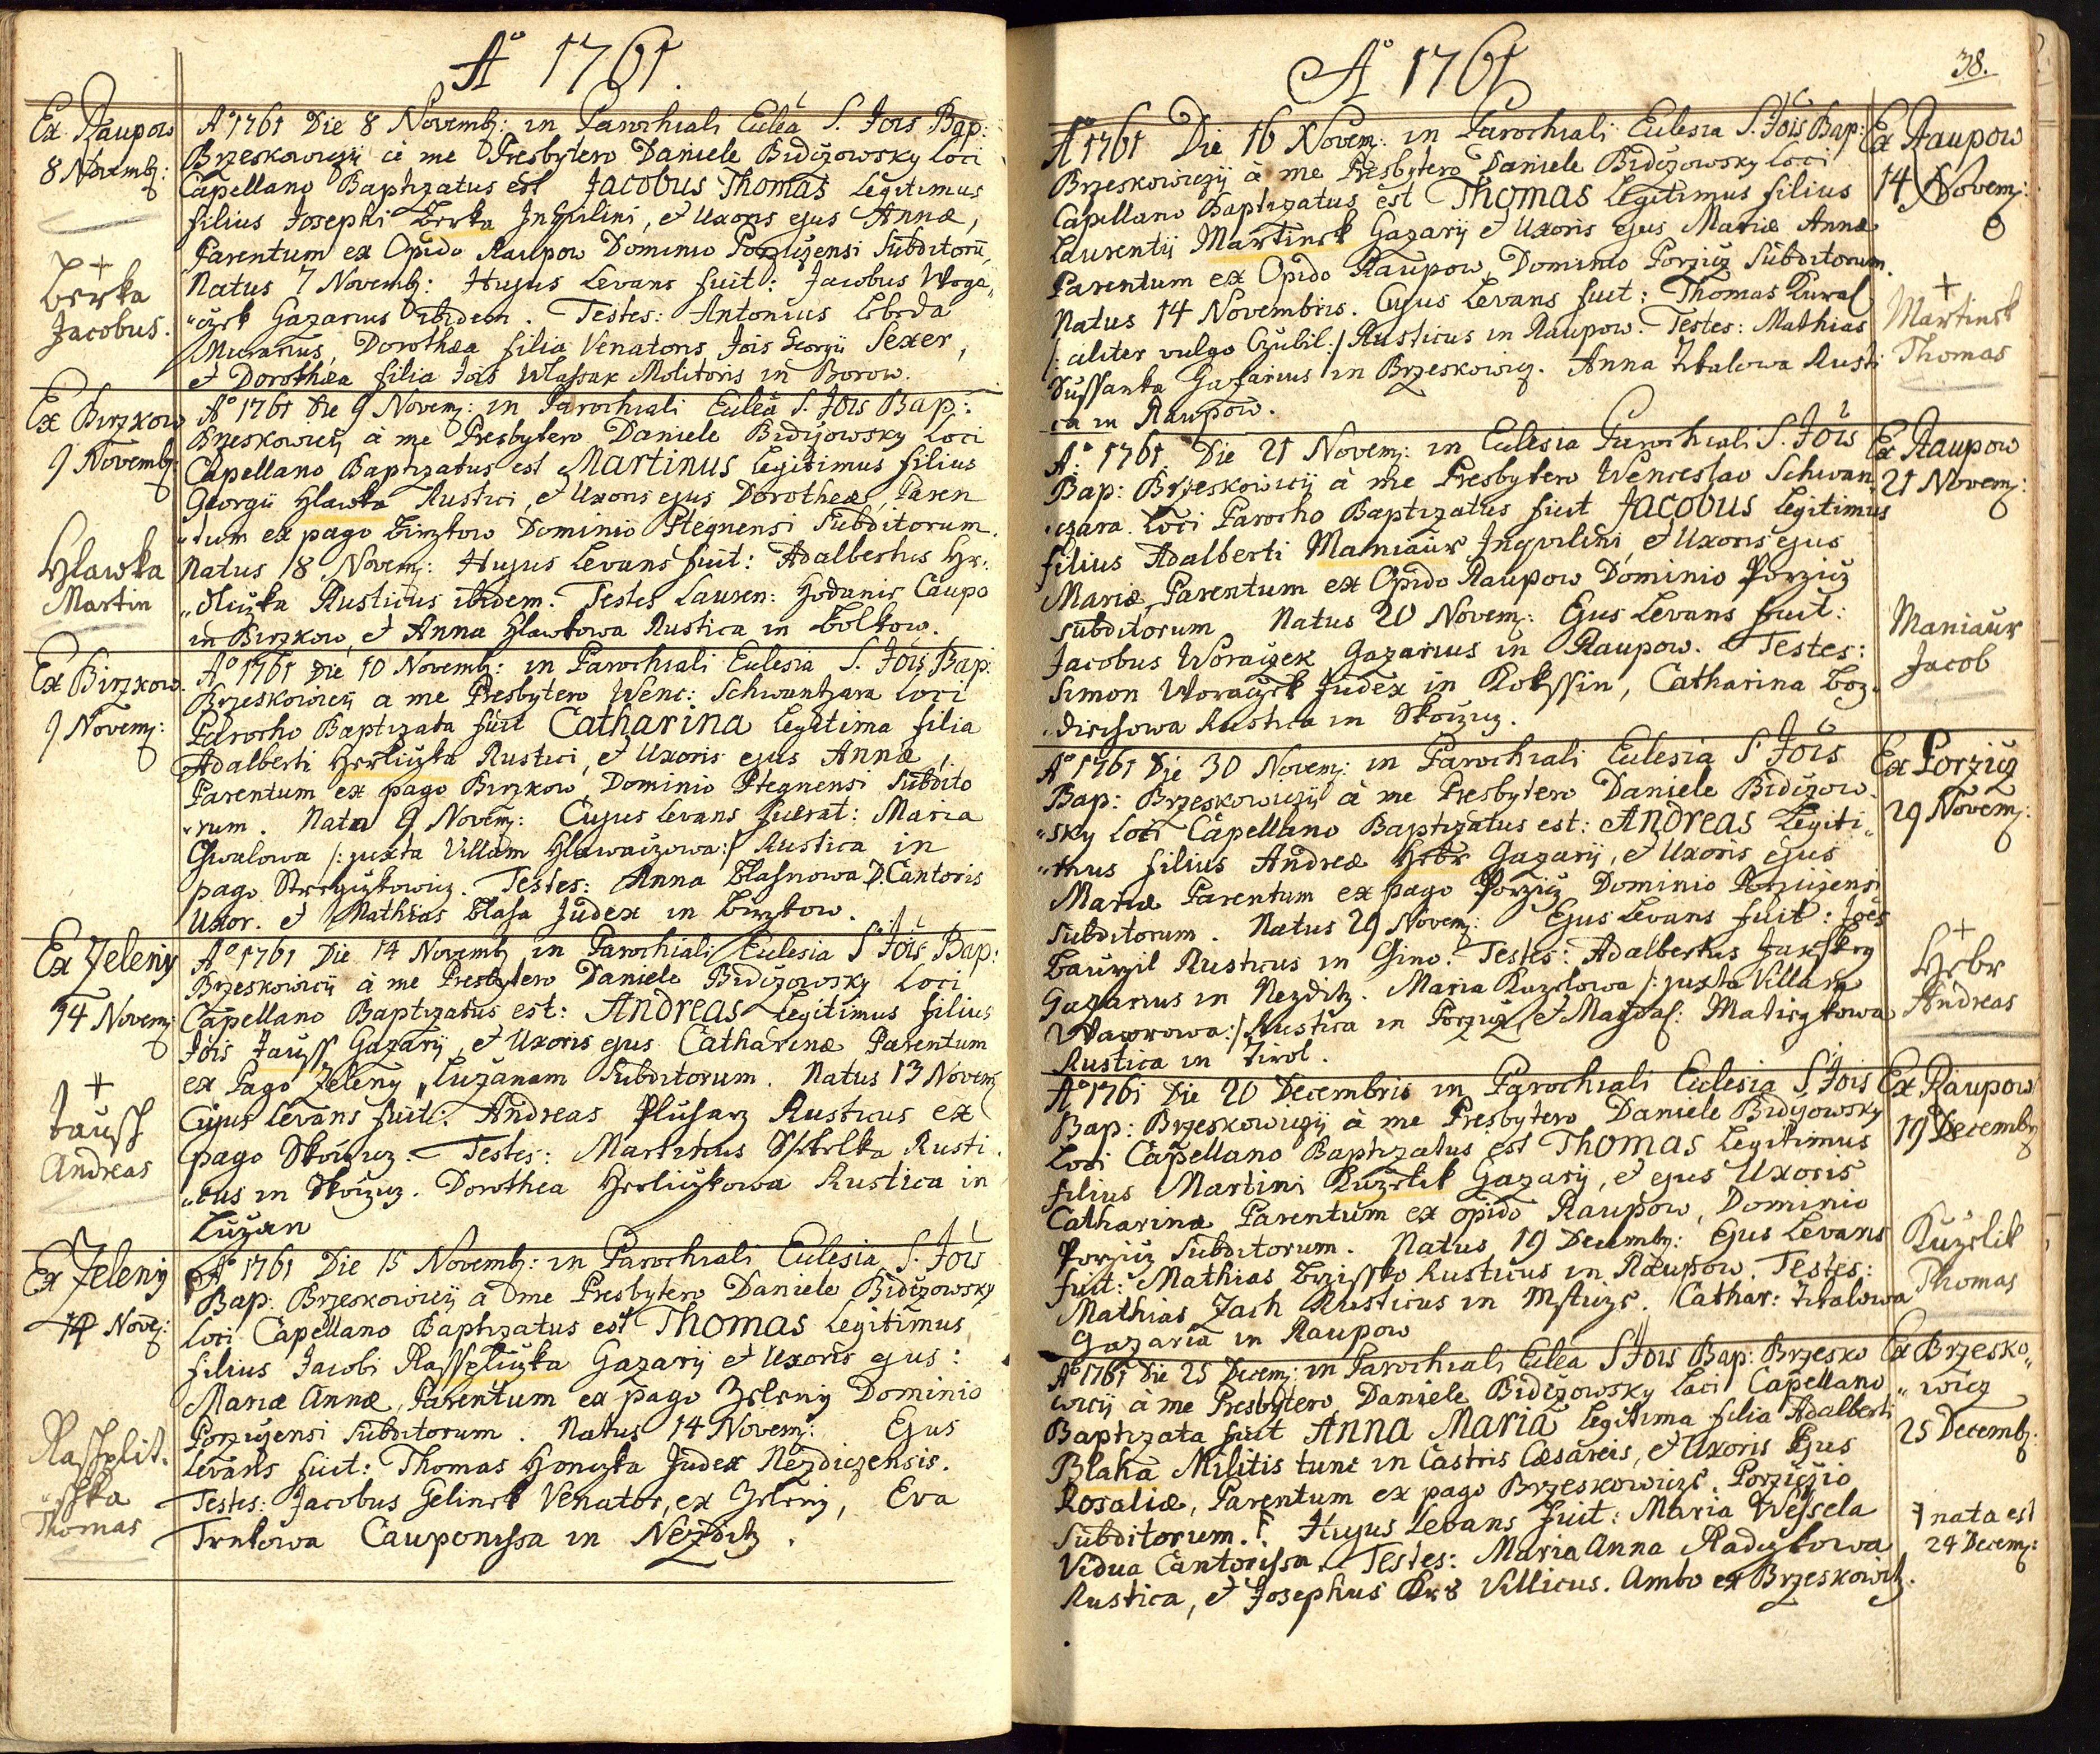 Aº 1761.
Ex Raupow
8 Novemb:
+
Berka
Jacobus.
Aº 1761 Die 8 Novemb: in Parochiali Ecclêa S. Jois Bap:
Brzeskowiczij à me Presbytero Daniele Bidiżowsky Loci
Capellano Baptizatus est Jacobus Thomas Legitimus
filius Josephi Berka Inquilini, et Uxoris ejus Annæ,
Parentum ex Opido Raupow Dominio Porziczensi Subditorũ,
Natus 7 Novemb: Hujus Levans fuit: Jacobus Wora„
„czek Gazarius ibidem. Testes: Antonius Lebeda
Murarius, Dorothæa filia Venatoris Jois Georgii Sexer,
et Dorothæa filia Jois Wlassak Molitoris in Borow.
Ex Birzkow
9 Novemb:
Hlawka
Martin
Aº 1761 Die 9 Novem: in Parochiali Ecclêa S. Jois Bap:
Brzeskowicij à me Presbytero Daniele Bidiżowsky Loci
Capellano Baptizatus est Martinus Legitimus filius
Georgii Hlawka Rustici, et Uxoris ejus Dorotheæ, Paren
„tum ex pago Birzkow Dominio Ptegnensi Subditorum.
Natus 18 Novem: Hujus Levans fuit: Adalbertus Hr„
„dliczka Rusticus ibidem. Testes Lauren: Hodanir Caupo
in Birzkow, et Anna Hlawkowa Rustica in Bolkow.
Ex Birzkow.
9 Novem:
Aº 1761 Die 10 Novemb: in Parochiali Ecclesia S. Jois Bap:
Brzeskowicij a me Presbytero Wenc: Schwantzara Loci
Parocho Baptizata fuit Catharina Legitima filia
Adalberti Herliczka Rustici, et Uxoris ejus Annæ,
Parentum ex pago Birzkow Dominio Ptegnensi Subdito
„rum. Nata 9 Novem: Cujus Levans fuerat: Maria
Chwalowa /: juxta Villam Hlawaczowa:/ Rustica in
pago Strzyzkowicz. Testes: Anna Blasnowa D. Cantoris
Uxor. et Mathias Blasa Judex in Birzkow.
Ex Zeleny
14 Novem:
+
Jaussh
Andreas
Aº 1761 Die 14 Novemb in Parochiali Ecclesia S Jois Bap:
Brzeskowicij à me Presbytero Daniele Bidiżowsky Loci
Capellano Baptizatus est: Andreas Legitimus filius
Jois Jauss Gazarij, et Uxoris ejus Catharinæ Parentum
ex Pago Zeleny, Luzanam Subditorum. Natus 13 Novem
Cujus Levans fuit: Andreas Pluharz Rusticus ex
pago Skoczicz. Testes: Martinus Rusti„
„cus in Skoczicz. Dorothea Herliczkowa Rustica in
Luzan
Ex Zeleny
14 Nove:
Rassplit.
„schka
Thomas
Aº 1761 Die 15 Novemb: in Parochiali Ecclesia S. Jois
Bap: Brzeskowicij à me Presbytero Daniele Bidiżowsky
Loci Capellano Baptizatus est Thomas Legitimus
filius Jacobi Rasspliczka Gazarij et Uxoris ejus:
Mariæ Annæ, Parentum ex pago Zeleny Dominio
Porzicjensi Subditorum. Natus 14 Novem: Ejus
Levans fuit: Thomas Honczka Judex Nezdiczensis.
Testes: Jacobus Gelinek Venator, ex Zeleny, Eva
Trnkowa Cauponissa in Nezditz.
Aº 1761
38.
Aº 1761 Die 16 Novem: in Parochiali Ecclesia S. Jois Bap:
Brzeskowiczij à me Presbytero Daniele Bidiżowsky Loci
Capellano Baptizatus est Thomas Legitimus filius
Laurentij Martinek Gazarij et Uxoris ejus Mariæ Annæ
Parentum ex Opido Raupow, Dominio Porzicz Subditorum.
Natus 14 Novembris. Cujus Levans fuit: Thomas Kural
/: aliter vulgo Czubil:/ Rusticus in Raupow. Testes: Mathias
Sussanka Gazarius in Brzeskowicz. Anna Tikalowa Rusti
ca in Raupow.
Ex Raupow
14 Novem:
+
Martinek
Thomas
Aº 1761 Die 21 Novem: in Ecclesia Parochiali S. Jois
Bap: Brzeskowicij à me Presbytero Wenceslao Schwan„
„czara Loci Parocho Baptizatus fuit Jacobus Legitimus
filius Adalberti Maniaur Inquilini, et Uxoris ejus
Mariæ Parentum ex Opido Raupow Dominio Porzicz
Subditorum Natus 20 Novem: Ejus Levans fuit:
Jacobus Woraczek Gazarius in Raupow. Testes:
Simon Woraczek Judex in Rokssin, Catharina Boz„
„diechowa Rustica in Skoczicz.
Ex Raupow
21 Novem:
Maniaur
Jacob
Aº 1761 Die 30 Novem: in Parochiali Ecclesia S Jois
Bap: Brzeskowiczij à me Presbytero Daniele Bidiżow„
„sky Loci Capellano Baptizatus est: Andreas Legiti„
„mus filius Andreæ Hrbr Gazarij, et Uxoris ejus
Mariæ Parentum ex pago Porzicz Dominio Porzicjensi
Subditorum. Natus 29 Novem: Ejus Levans fuit: Joës
Bauczil Rusticus in Gino. Testes: Adalbertus
Gazarius in Nezditz. Maria Kuzelowa /: juxta Villam
Waworowa:/ Rustica in Porzicz, et Magdal: Matiejkowa
Rustica in Tirol.
Ex Porzicz
29 Novem:
+
Hrbr
Andreas
Aº 1761 Die 20 Decembris in Parochiali Ecclesia S Jois
Bap: Brzeskowiczij à me Presbytero Daniele Bidiżowsky
Loci Capellano Baptizatus est Thomas Legitimus
filius Martini Kuzelik Gazarij, et ejus Uxoris
Catharinæ Parentum ex opido Raupow, Dominio
Porzicz Subditorum. Natus 19 Decemb: Ejus Levans
fuit: Mathias Brzissko Rusticus in Raupow. Testes:
Mathias Zach Rusticus in Msticze. Cathar: Tikalowa
Gazaria in Raupow
Ex Raupow
19 Decemb
Kuzelik
Thomas
Aº 1761 Die 25 Decem: in Parochiali Ecclêa S Jois Bap: Brzesko
wicij à me Presbytero Daniele Bidiżowsky Loci Capellano
Baptizata fuit Anna Maria Legitima filia Adalberti
Blaha Militis tunc in Castris Cæsareis, et Uxoris Ejus
Rosaliæ, Parentum ex pago Brzeskowicze, Porziczio
Subditorum. Hujus Levans fuit: Maria Wessela
Vidua Cantorissa. Testes: Maria Anna Radczkowa
Rustica, et Josephus Krs Villicus. Ambo ex Brzeskowitz.
Ex Brzesko„
„wicz
25 Decemb:
nata est
24 Decem: